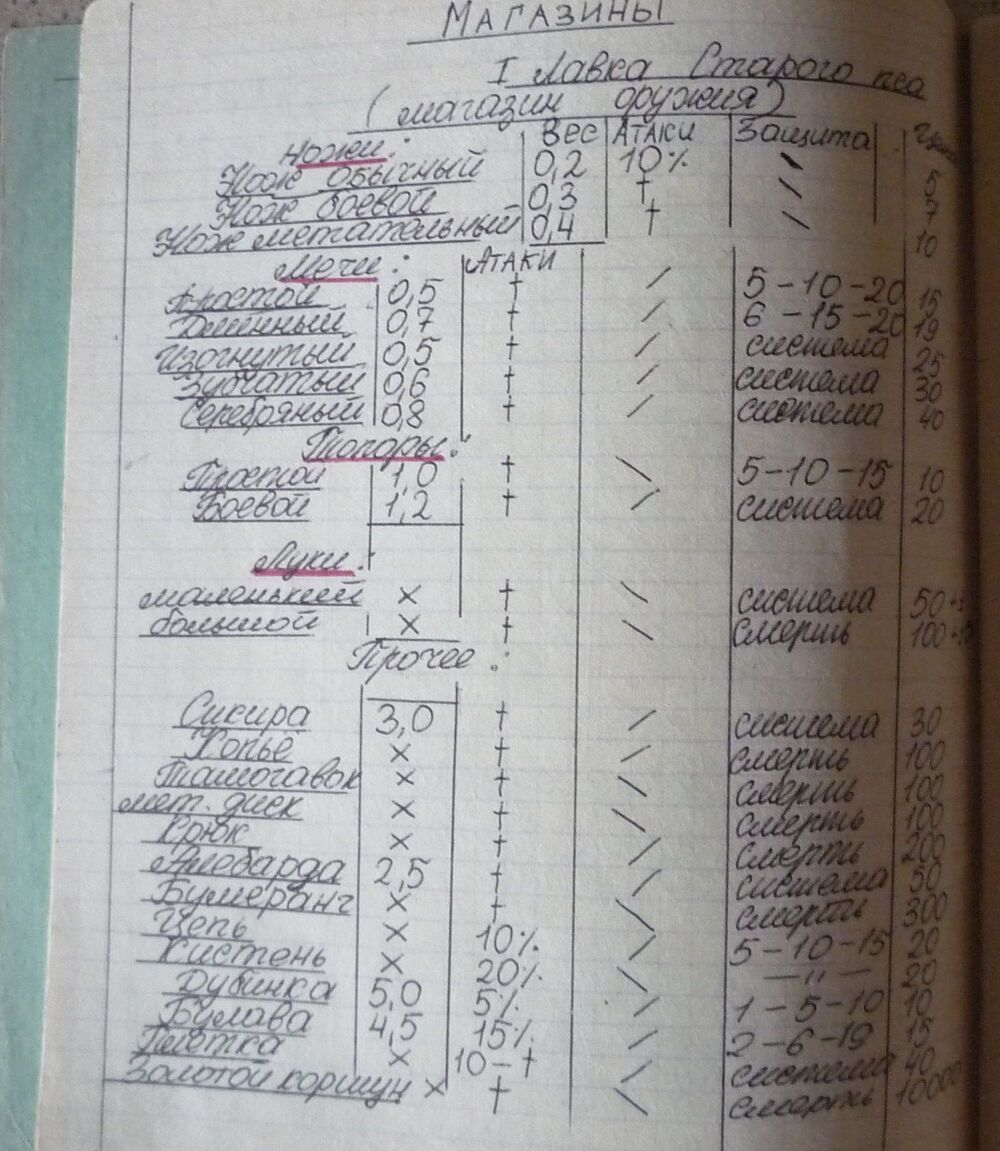 МАГАЗИНЫ
I Лавка Старого пса
(магазин оружия)
Ножи: Вес Атаки Защита Цена
Нож обычный 0,2 10% \ 5
Нож боевой 0,3 † \ 7
Нож метательный 0,4 † \ 10
Мечи: Атаки
Простой 0,5 † / 5-10-20 15
Длинный 0,7 † / 6-15-20 19
Изогнутый 0,5 † / система 25
Зубчатый 0,6 † / система 30
Серебряный 0,8 † / система 40
Топоры:
Простой 1,0 † \ 5-10-15 10
Боевой 1,2 † / система 20
Луки:
маленький × † \ система 50
большой × † \ смерть 100
Прочее:
Сикира 3,0 † / система 30
Копьё × † / смерть 100
Томогавок × † \ смерть 100
мет. диск × † \ смерть 100
Крюк × † / смерть 200
Алебарда 2,5 † / система 50
Бумеранг × † \ смерть 300
Цепь × 10% / 5-10-15 20
Кистень × 20% \ —"— 20
Дубинка 5,0 5% / 1-5-10 10
Булава 4,5 15% / 2-6-19 15
× 10-† / система 40
Золотой коршун × † \ смерть 10000